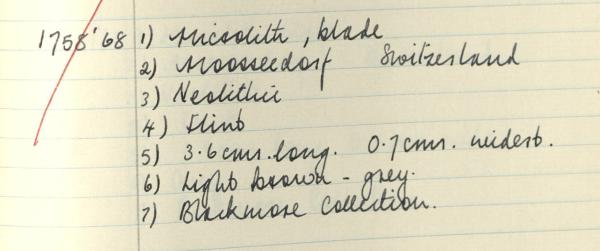 1758'68 1) Microlith, blade
2) Moosseedorf Switzerland
3) Neolithic
4) Flint
5) 3.6 cms. long. 0.7 cms. widest.
6) Light brown - grey.
7) Blackmore Collection.